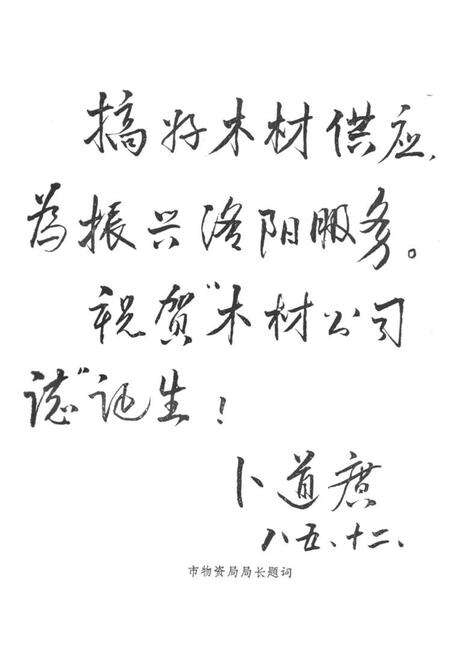 搞好木材供应、
为振兴洛阳服务。
祝贺"木材公司
志"诞生！
卜道赓
八五、十二、
市物资局局长题词